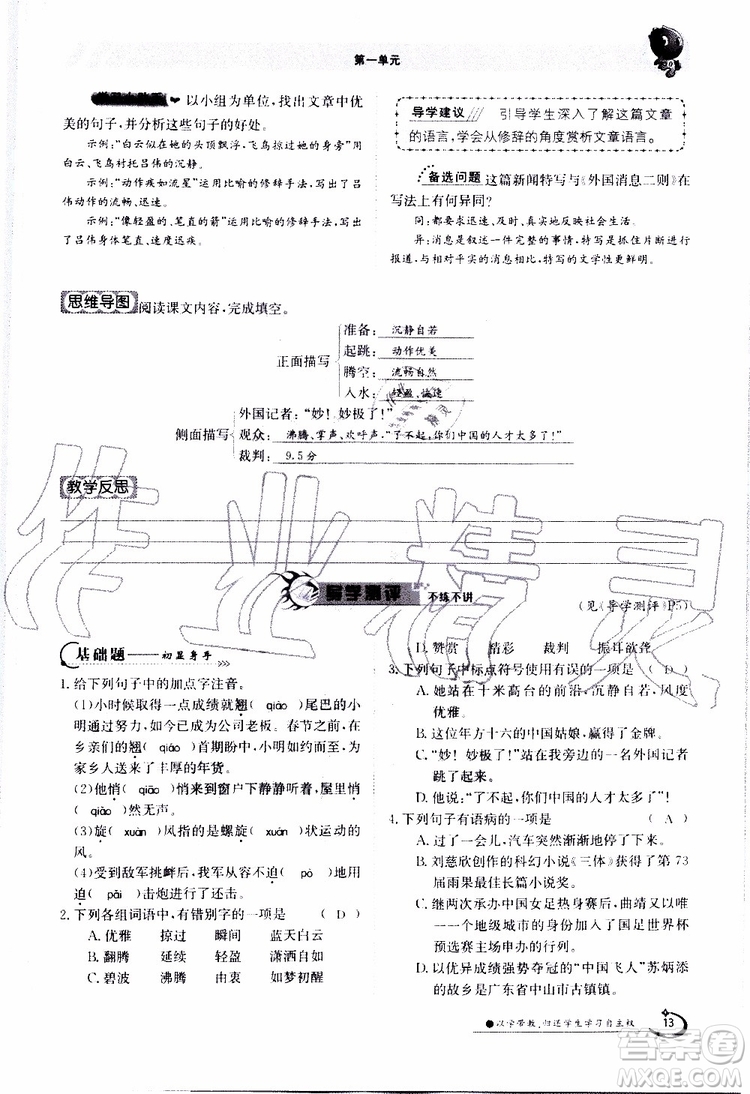 第一单元
以小组为单位,找出文章中优
美的句子,并分析这些句子的好处。
示例:“白云似在她的头顶飘浮,飞鸟掠过她的身旁”用
白云、飞鸟衬托吕伟的沉静。
示例:“动作疾如流星”运用比喻的修辞手法,写出了吕
伟动作的流畅、迅速。
示例:“像轻盈的、笔直的箭”运用比喻的修辞手法,写出
了吕伟身体笔直、迅速迅疾。
导学建议 引导学生深入了解这篇文章
的语言,学会从修辞的角度赏析文章语言。
备选问题 这篇新闻特写与《外国消息二则》在
写法上有何异同?
同:都要求迅速,及时、真实地反映社会生活。
异:消息是叙述一件完整的事情,特写是抓住片断进行
报道,与相对平实的消息相比,特写的文学性更鲜明。
思维导图 阅读课文内容,完成填空。
正面描写
准备: 沉静自若
起跳: 动作优美
腾空: 流畅自然
入水: 轻盈、迅速
侧面描写
外国记者:“妙!妙极了!”
观众: 沸腾、掌声、欢呼声,“了不起,你们中国的人才太多了!”
裁判: 9.5分
教学反思
导学测评 不练不讲
(见《导学测评》P5)
基础题——初显身手
1. 给下列句子中的加点字注音。
(1)小时候取得一点成绩就翘(qiào)尾巴的
小明,如今已成为公司老板。春节期间,在
乡亲们的翘(qiáo)首期盼中,小明如约而至,为
家乡人送来了丰厚的年货。
(2)他悄(qiāo)悄来到窗户下静静听着,四周悄
(qiǎo)然无声。
(3)旋(xuàn)风指的是螺旋(xuán)状运动的
风。
(4)受到敌军挑衅后,我军不得不从强迫(pò)
击炮改为迫(pǎi)击炮……
2. 下列各组词语中,有错别字的一项是 (D)
A. 优雅 掠过 瞬间 蓝天白云
B. 翻腾 延续 轻盈 潇洒自如
C. 碧波 沸腾 由衷 如梦初醒
D. 赞赏 精彩 裁判 振耳欲聋
3. 下列句子中标点符号使用有误的一项是 (D)
A. 她站在十米高台的前沿,沉静自若,风度
优雅。
B. 这位年方十六的中国姑娘,赢得了金牌。
C. “妙!妙极了!”站在我旁边的一名外国记者
跳了起来。
D. 他说:“了不起,你们中国的人才太多了”!
4. 下列句子有语病的一项是 (A)
A. 过了一会儿,汽车突然渐渐地放慢了速度。
B. 刘慈欣创作的科幻小说《三体》获得了第73
届雨果奖最佳长篇小说奖。
C. 继两次承办中国女足热身赛后,曲靖又以唯
一一个地级城市的身份加入了国足世界杯
预选赛主场申办的行列。
D. 以优异成绩强势夺冠的“中国飞人”苏炳添
的故乡是广东省中山市古镇镇。
●以学带教,归还学生学习自主权
13
作业精灵
答案圈
MXQE.COM